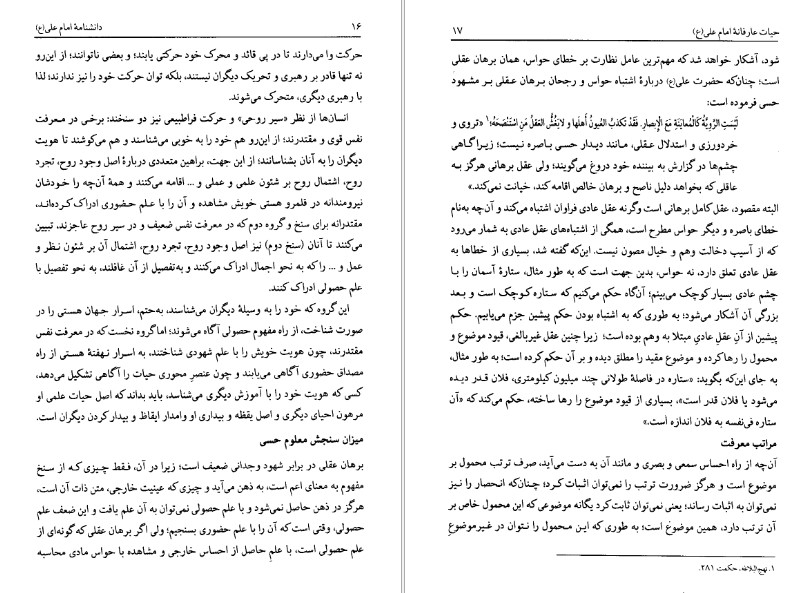 ۱۶ دانشنامهٔ امام علی(ع)
حرکت وا می‌دارند تا در پی قائد و محرک خود حرکتی یابند؛ و بعضی ناتوانند؛ از این‌رو
نه تنها قادر بر رهبری و تحریک دیگران نیستند، بلکه توان حرکت خود را نیز ندارند؛ لذا
با رهبری دیگری، متحرک می‌شوند.
انسان‌ها از نظر «سیر روحی» و حرکت فراطبیعی نیز دو سنخند: برخی در معرفت
نفس قوی و مقتدرند؛ از این‌رو هم خود را به خوبی می‌شناسند و هم می‌کوشند تا هویت
دیگران را به آنان بشناسانند؛ از این جهت، براهین متعددی دربارهٔ اصل وجود روح، تجرد
روح، اشتمال روح بر شئون علمی و عملی و ... اقامه می‌کنند و همهٔ آن‌چه را خودشان
نیرومندانه در قلمرو هستی خویش مشاهده و آن را با علم حضوری ادراک کرده‌اند،
مقتدرانه برای سنخ و گروه دوم که در معرفت نفس ضعیف و در سیر روح عاجزند، تبیین
می‌کنند تا آنان (سنخ دوم) نیز اصل وجود روح، تجرد روح، اشتمال آن بر شئون نظر و
عمل و ... را که به نحو اجمال ادراک می‌کنند و به‌تفصیل از آن غافلند، به نحو تفصیل با
علم حصولی ادراک کنند.
این گروه که خود را به وسیلهٔ دیگران می‌شناسند، به‌حتم، اسرار جهان هستی را در
صورت شناخت، از راه مفهوم حصولی آگاه می‌شوند؛ اما گروه نخست که در معرفت نفس
مقتدرند، چون هویت خویش را با علم شهودی شناختند، به اسرار نهفتهٔ هستی از راه
مصداق حضوری آگاهی می‌یابند و چون عنصر محوری حیات را آگاهی تشکیل می‌دهد،
کسی که هویت خود را با آموزش دیگری می‌شناسد، باید بداند که اصل حیات علمی او
مرهون احیای دیگری و اصل یقظه و بیداری او وامدار ایقاظ و بیدار کردن دیگران است.
میزان سنجش معلوم حسی
برهان عقلی در برابر شهود وجدانی ضعیف است؛ زیرا در آن، فقط چیزی که از سنخ
مفهوم به معنای اعم است، به ذهن می‌آید و چیزی که عینیت خارجی، متن ذات آن است،
هرگز در ذهن حاصل نمی‌شود و با علم حصولی نمی‌توان به آن علم یافت و این ضعف علم
حصولی، وقتی است که آن را با علم حضوری بسنجیم؛ ولی اگر برهان عقلی که گونه‌ای از
علم حصولی است، با علمِ حاصل از احساس خارجی و مشاهده با حواس مادی محاسبه
حیات عارفانهٔ امام علی(ع) ۱۷
شود، آشکار خواهد شد که مهم‌ترین عامل نظارت بر خطای حواس، همان برهان عقلی
است؛ چنان‌که حضرت علی(ع) دربارهٔ اشتباه حواس و رجحان برهان عقلی بر مشهود
حسی فرموده است:
لَیْسَتِ الرَّوِیَّةُ کَالْمُعایَنَةِ مَعَ الْإِبصارِ. فَقَدْ تَکذبُ العُیونُ أهلَها و لایَغُشُّ العَقلُ مَنِ اسْتَنْصَحَهُ؛۱ «تروی و
خردورزی و استدلال عقلی، مانند دیدار حسی باصره نیست؛ زیرا گاهی
چشم‌ها در گزارش به بیننده خود دروغ می‌گویند؛ ولی عقل برهانی هرگز به
عاقلی که بخواهد دلیل ناصح و برهان خالص اقامه کند، خیانت نمی‌کند.»
البته مقصود، عقل کامل برهانی است وگرنه عقل عادی فراوان اشتباه می‌کند و آن‌چه به‌نام
خطای باصره و دیگر حواس مطرح است، همگی از اشتباه‌های عقل عادی به شمار می‌رود
که از آسیب دخالت وهم و خیال مصون نیست. این‌که گفته شد، بسیاری از خطاها به
عقل عادی تعلق دارد، نه حواس، بدین جهت است که به طور مثال، ستارهٔ آسمان را با
چشم عادی بسیار کوچک می‌بینم؛ آن‌گاه حکم می‌کنیم که ستاره کوچک است و بعد
بزرگی آن آشکار می‌شود؛ به طوری که به اشتباه بودن حکم پیشین جزم می‌یابیم. حکم
پیشین از آنِ عقلِ عادیِ مبتلا به وهم بوده است؛ زیرا چنین عقل غیربالغی، قیود موضوع و
محمول را رها کرده و موضوع مقید را مطلق دیده و بر آن حکم کرده است؛ به طور مثال،
به جای این‌که بگوید: «ستاره در فاصلهٔ طولانی چند میلیون کیلومتری، فلان قدر دیده
می‌شود یا فلان قدر است»، بسیاری از قیود موضوع را رها ساخته، حکم می‌کند که «آن
ستاره فی‌نفسه به فلان اندازه است.»
مراتب معرفت
آن‌چه از راه احساس سمعی و بصری و مانند آن به دست می‌آید، صرف ترتب محمول بر
موضوع است و هرگز ضرورت ترتب را نمی‌توان اثبات کرد؛ چنان‌که انحصار را نیز
نمی‌توان به اثبات رساند؛ یعنی نمی‌توان ثابت کرد یگانه موضوعی که این محمول خاص بر
آن ترتب دارد، همین موضوع است؛ به طوری که این محمول را نتوان در غیرموضوع
۱. نهج‌البلاغه، حکمت ۲۸۱.